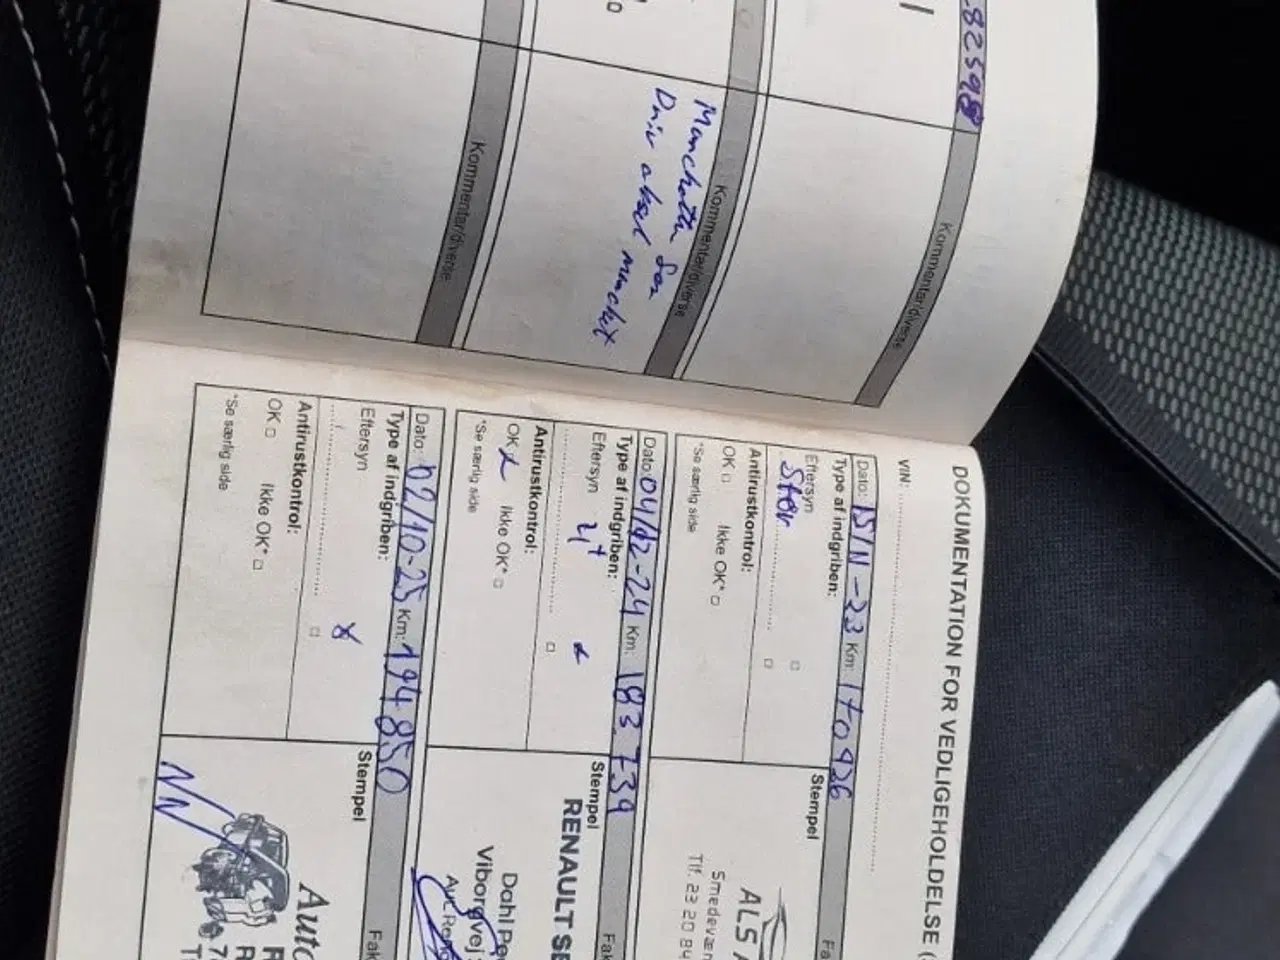 82598
Kommentar/diverse
Kommentar/diverse
Driv aksel
Kommentar/diverse
DOKUMENTATION FOR VEDLIGEHOLDELSE (
VIN:
Dato: 15/11-23 Km: 170926
Type af indgriben:
Eftersyn
Stor
Antirustkontrol:
OK Ikke OK*
*Se særlig side
Stempel
Fa
ALS
Smedevæn
Tlf. 23 20 84
Dato: 04/12-24 Km: 183.739
Type af indgriben:
Eftersyn
Antirustkontrol:
OK x Ikke OK*
*Se særlig side
Stempel
Fak
RENAULT SE
Dahl Pe
Viborgvej
Aut. Reno
Dato: 02/10-25 Km: 194.850
Type af indgriben:
Eftersyn x
Antirustkontrol:
OK Ikke OK*
*Se særlig side
Stempel
Fak
Auto